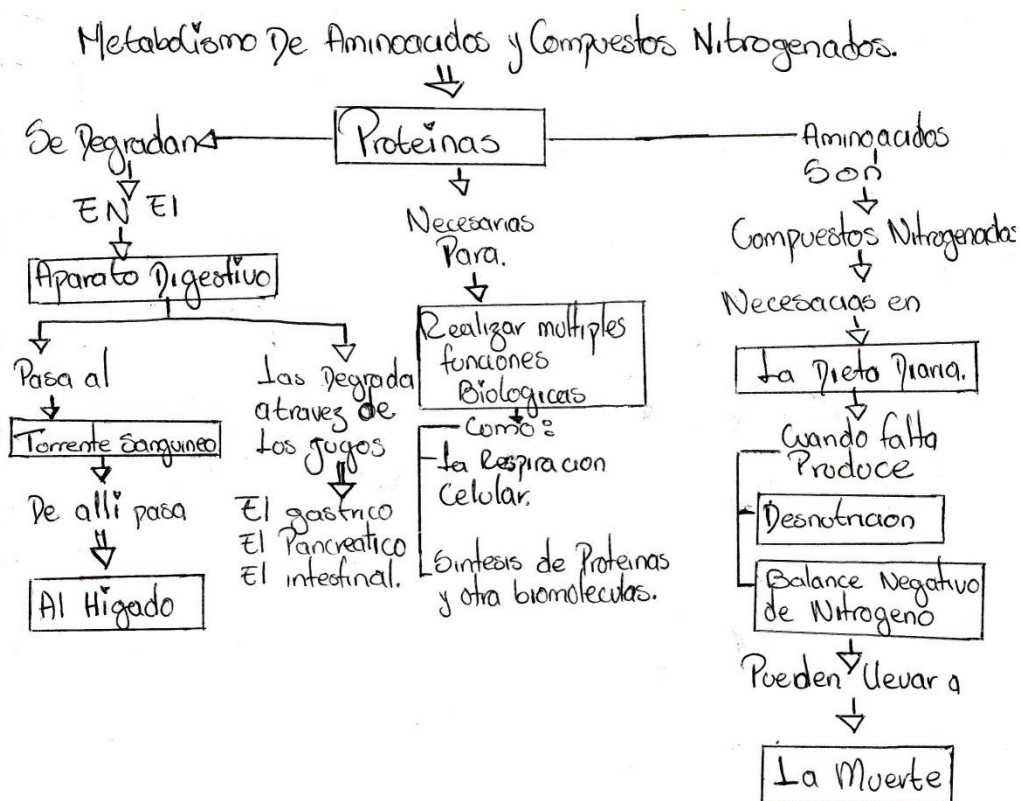 Metabolismo De Aminoacidos y Compuestos Nitrogenados.
Proteinas
Se Degradan
EN El
Aparato Digestivo
Pasa al
Torrente Sanguineo
De alli pasa
Al Higado
Las Degrada
atravez de
Los jugos
El gastrico
El Pancreatico
El intestinal.
Necesarias
Para.
Realizar multiples
funciones
Biologicas
Como:
La Respiracion
Celular.
Sintesis de Proteinas
y otra biomoleculas.
Aminoacidos
Son
Compuestos Nitrogenados
Necesarias en
La Dieta Diaria.
Cuando falta
Produce
Desnutricion
Balance Negativo
de Nitrogeno
Pueden llevar a
La Muerte